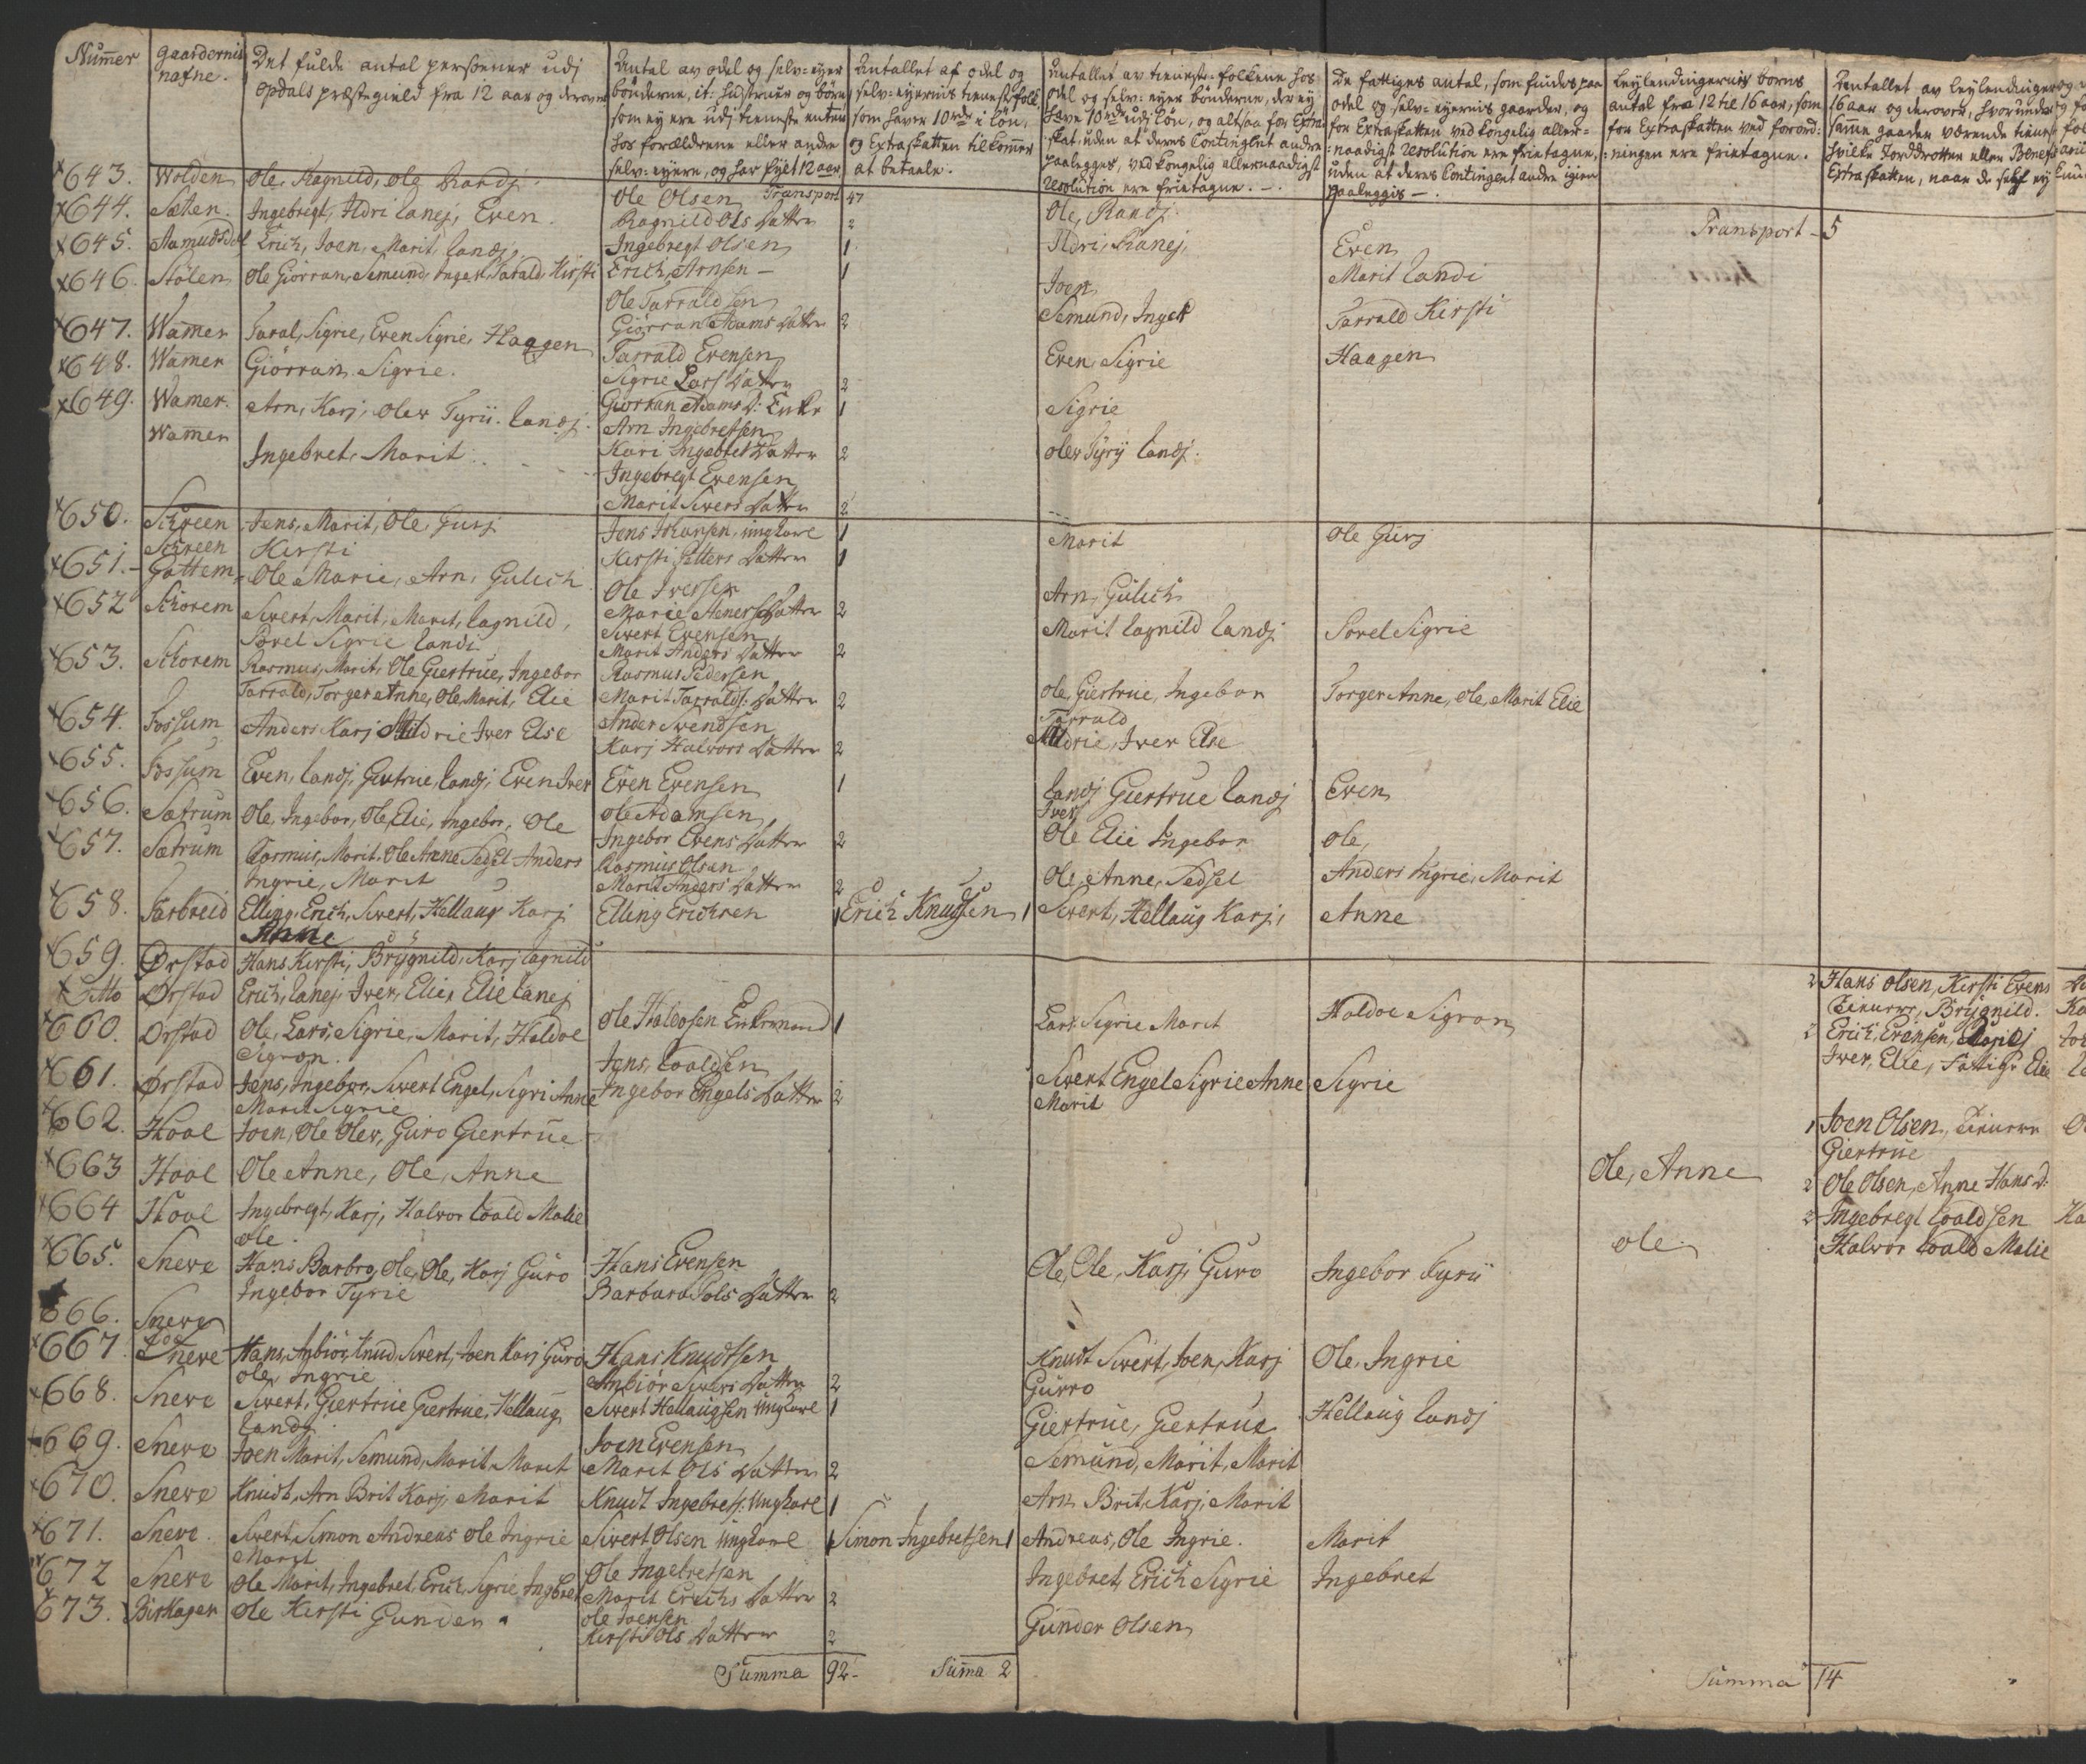 Nummer | gaardernis nafne. | Det fulde antal personer udj Opdals præstegield fra 12 aar og derover | Antal av odel og selv=eyer bönderne, it: hustruer og börn, som ey ere udj tieneste enten hos forældrene eller andre selv=eyere, og har fyldt 12 aar | Antallet af odel og selv=eyernis tienestfolk, som haver 10 rdr i lön, og Extraskatten tilkommer at betaele. | Antallet av tieneste=folkene hos odel og selv=eyer bönderne, der ey have 10 rdr udj lön, og altsaa for Extra skat, uden at deres Contingent andre paalegges, ved kongelig allernaadigst resolution ere frietagne. | De fattiges antal, som findes paa odel og selv=eyernis gaarder, og for Extraskatten ved kongelig aller=naadigst resolution ere frietagne, uden at deres Contingent andre igien paaleggis | Leylendingernis borns antal fra 12 til 16 aar, som for Extraskatten ved forordningen ere frietagne. | Antallet av leylendinger 16 aar og derover, hvorunder samme gaarder værende hvilke Jorddrotten eller Extraskatten, naar de self ey
643. Wolden | Ole, Ragnild, Ole Randj | Ole Olsen Transport 47
Ragnild Ols Datter 2 | Ole, Randj | Transport 5
644. Sæten. | Ingebregt, Ildri Ranej, Even. | Ingebregt Olsen 1 | Ildri, Ranej, | Even
645. Aamudsdal | Erich, Joen, Marit, Randj, | Erich Arnsen 1 | Joen | Marit Randi
646. Stölen | Ole Giörran, Semund, Inger, Tarald, Kirsti | Ole Tarraldsen
Giörran Adams Datter 2 | Semund, Inger | Tarrald Kirsti
647. Wamer | Taral, Sigrie, Even Sigrie, Haagen | Tarrald Evensen
Sigrie Lars Datter 2 | Even, Sigrie | Haagen
648. Wamer | Giörran, Sigrie. | Giörran Adams D: Enke 1 | Sigrie
649. Wamer. | Arn, Karj, Oler Tyrii. Randj. | Arn Ingebretsen
Kari Ingebret Datter 2 | Oler Tyrij Randj.
Wamer | Ingebret, Marit | Ingebregt Evensen
Marit Sivers Datter 2
650. Schreen | Jens, Marit, Ole, Gurj | Jens Johansen, ungkarl 1 | Marit | Ole Gurj
Schreen | Kirsti | Kirsti Pitters Datter 1
651. Gottem | Ole Marie, Arn, Gulich | Ole Iversen
Marie Steners Datter 2 | Arn, Gulich
652 Schorem | Sivert, Marit, Marit, Ragnild, | Sivert Evensen
Sorel Sigrie Randi | Marit Anders Datter 2 | Marit Ragnild Randj | Sorel Sigrie
653. Schorem | Rasmus, Marit, Ole Giertrue, Ingebor | Rasmus Pedersen
Tarrald, Torger Anne, Ole, Marit, Elie | Marit Tarralds: Datter 2 | Ole, Giertrue, Ingebor Tarrald | Torger Anne, Ole, Marit Elie
654. Fossum | Anders Karj Ildrie Iver Else | Ander Svendsen
Karj Halvors Datter 2 | Ildrie, Iver Else
655. Fossum | Even, Randj, Giertrue, Randj, Even Iver | Even Evensen 1 | Randj Giertrue Randj Iver | Even
656. Sætrum | Ole, Ingebor, Ole, Elie, Ingebor, Ole | Ole Adamsen
Ingebor Evens Datter 2 | Ole Elie Ingebor | Ole,
657. Sætrum | Rasmus, Marit, Ole Anne Sedsel Anders | Rasmus Olsen
Ingrie, Marit | Marit Anders Datter 2 | Ole, Anne, Sedsel | Anders Ingrie, Marit
658. Farbreid | Elling, Erich, Sivert, Hellaug Karj | Elling Erichsen 1 | Erich Knudsen 1 | Sivert, Hellaug Karj, | Anne
Anne
659. Ørstad | Hans Kirsti, Brygnild, Karj Ragnild | 2 Hans Olsen, Kirsti Evens
Tienere, Brygnild.
Ditto Ørstad | Erich, Ranej, Iver, Elie, Elie Ranej | 2 Erich Evensen,
Iver, Elie, Fattige Elie
660. Ørstad | Ole, Lars, Sigrie, Marit, Haldoe | Ole Haldosen Enkemand 1 | Lars Sigrie Marit | Haldoe Sigron
Sigron.
661. Ørstad | Jens, Ingebor, Sivert Engel, Sigri Anne | Jens Roaldsen
Marit Sigrie | Ingebor Engels Datter 2 | Sivert Engel Sigrie Anne Marit | Sigrie
662. Hoel | Joen, Ole Oler, Guro Giertrue | 1 Joen Olsen, Tienere
Giertrue
663 Hoel | Ole Anne, Ole, Anne | Ole, Anne | 2 Ole Olsen, Anne Hans D:
664 Hoel | Ingebregt, Karj, Halvor Roald Malie | 2 Ingebregt Roaldsen
Ole. | Ole. | Halvor Roald Malie
665. Sneve | Hans Barbro, Ole, Ole, Karj Guro | Hans Evensen
Ingebor Tyrie | Barbara Pols Datter 2 | Ole, Ole, Karj, Guro | Ingebor Tyrii
666. Sneve
667. Sneve | Hans, Anbiör, Knud, Sivert, Joen Karj Guro | Hans Knudtsen
Ole, Ingrie | Anbiör Sivers Datter 2 | Knudt Sivert, Joen, Karj Gurro | Ole, Ingrie
668. Sneve | Sivert, Giertrue Giertrue, Hellaug | Sivert Hellaugsen Ungkarl 1 | Giertrue, Giertrue | Hellaug Randj
Randj
669. Sneve | Joen Marit, Semund, Marit, Marit | Joen Evensen
Marit Ols Datter 2 | Semund, Marit, Marit
670. Sneve | Knudt, Arn Brit Karj, Marit | Knudt Ingebrets: Ungkarl 1 | Arn Brit, Karj, Marit
671. Sneve. | Sivert, Simon Andreas Ole Ingrie | Sivert Olsen Ungkarl 1 | Simon Ingebretsen 1 | Andreas, Ole Ingrie. | Marit
Marit
672 Sneve | Ole Marit, Ingebret, Erich, Sigrie Ingebret | Ole Ingebretsen
Marit Erichs Datter 2 | Ingebret, Erich Sigrie | Ingebret
673. Birkager | Ole Kirsti Gunder | Ole Joensen
Kirsti Ols Datter 2 | Gunder Olsen
Summa 92 | Suma 2 | Summa 14